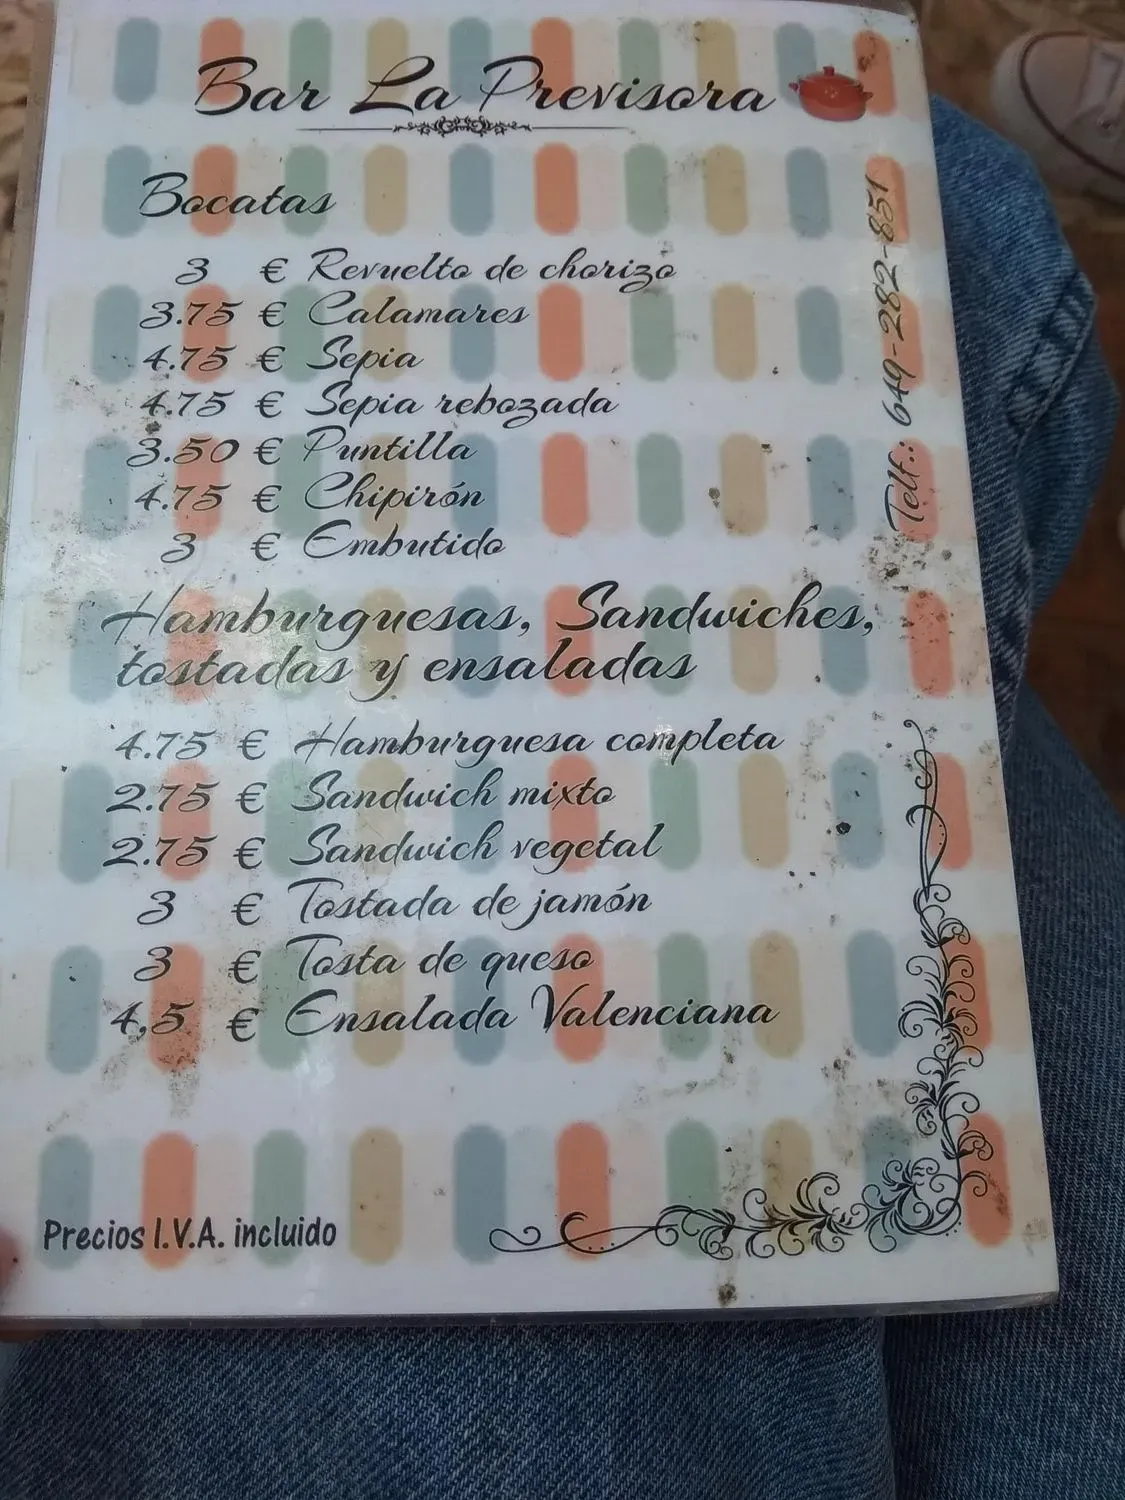 Bar La Previsora
Telf.: 649-282-851
Bocatas
3 € Revuelto de chorizo
3.75 € Calamares
4.75 € Sepia
4.75 € Sepia rebozada
3.50 € Puntilla
4.75 € Chipirón
3 € Embutido
Hamburguesas, Sandwiches,
tostadas y ensaladas
4.75 € Hamburguesa completa
2.75 € Sandwich mixto
2.75 € Sandwich vegetal
3 € Tostada de jamón
3 € Tosta de queso
4,5 € Ensalada Valenciana
Precios I.V.A. incluido